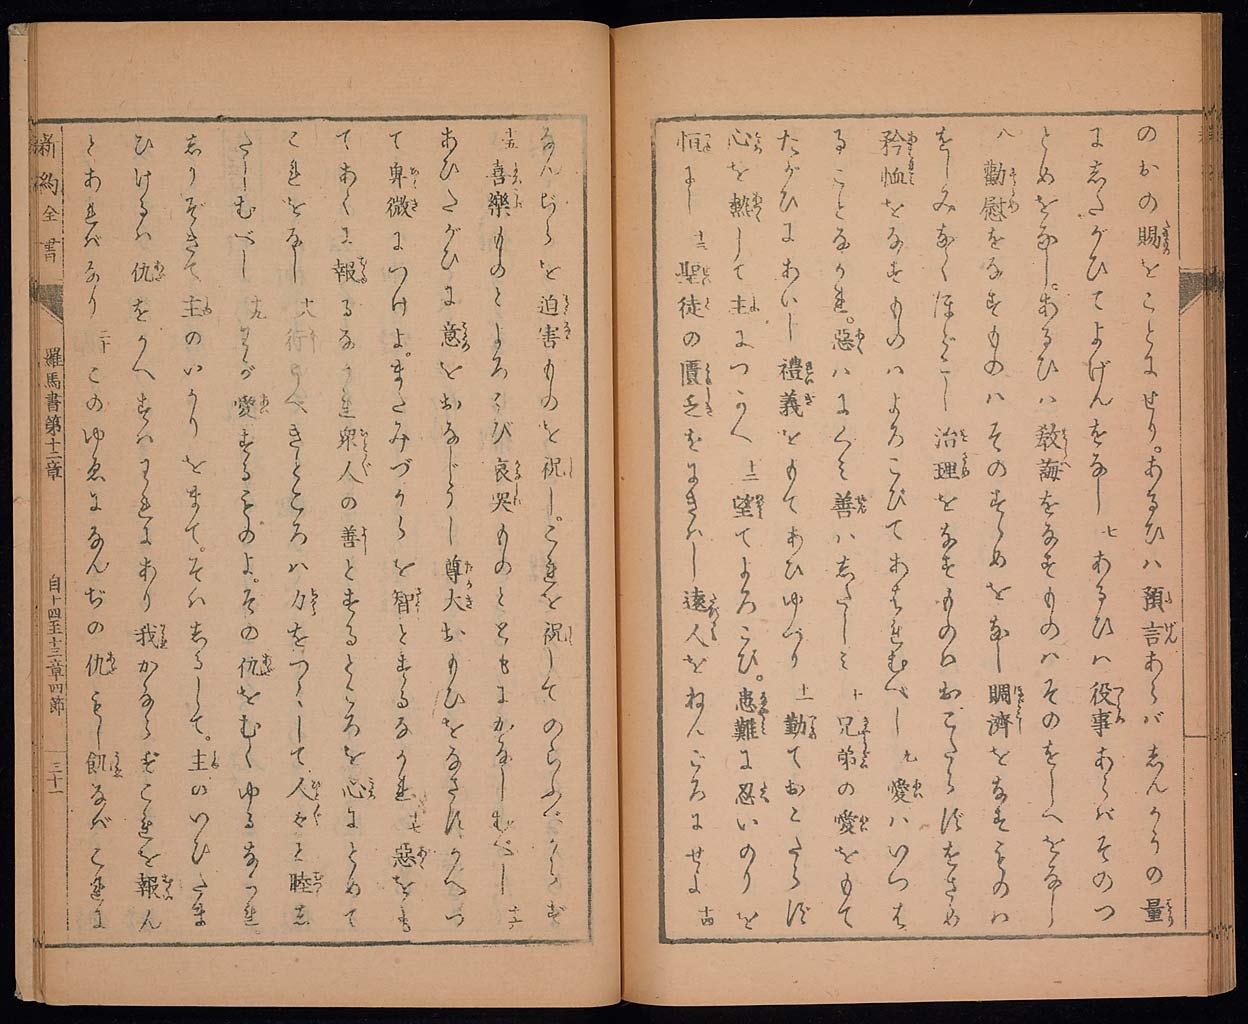 のおの賜をことにせり。あるひハ預言あらバしんかうの量
にしたがひてよげんをなし 七 あるひハ役事あらバそのつ
とめをなし。あるひハ教誨をなすものハそのをしへをなし
八 勸慰をなすものハそのすゝめをなし賙濟をなすものハ
をしみなくほどこし治理をなすものハおこたらずをさめ
矜恤をなすものハよろこびてあはれむべし 九 愛ハいつは
ることなかれ。惡ハにくみ善ハしたしみ 十 兄弟の愛をもて
たがひにあいし禮義をもてあひゆづり 十一 勤ておこたらず
心を熱して主につかへ 十二 望てよろこび。患難に忍いのりを
恒にし 十三 聖徒の匱乏をにぎはし遠人をねんごろにせよ 十四
なんぢらを迫害ものを祝し。これを祝してのろふべからず
十五 喜樂ものとよろこび哀哭ものとともにかなしむべし 十六
あひたがひに意をおなじうし尊大おもひをなさずかへつ
て卑微につけよ。またみづからを智とするなかれ 十七 惡をも
てあくに報るなかれ衆人の善とするところを心にとめて
これをなし 十八 行うべきところハ力をつくして人々と睦し
たしむべし 十九 わが愛するものよ。その仇をむくゆるなかれ。
しりぞきて主のいかりをまて。そハしるして。主のいひたま
ひけるハ仇をかへすハわれにあり我かならずこれを報ん
とあればなり 二十 このゆゑになんぢの仇もし飢なバこれに
新約全書 羅馬書第十二章 自十四至十三章四節 三十一